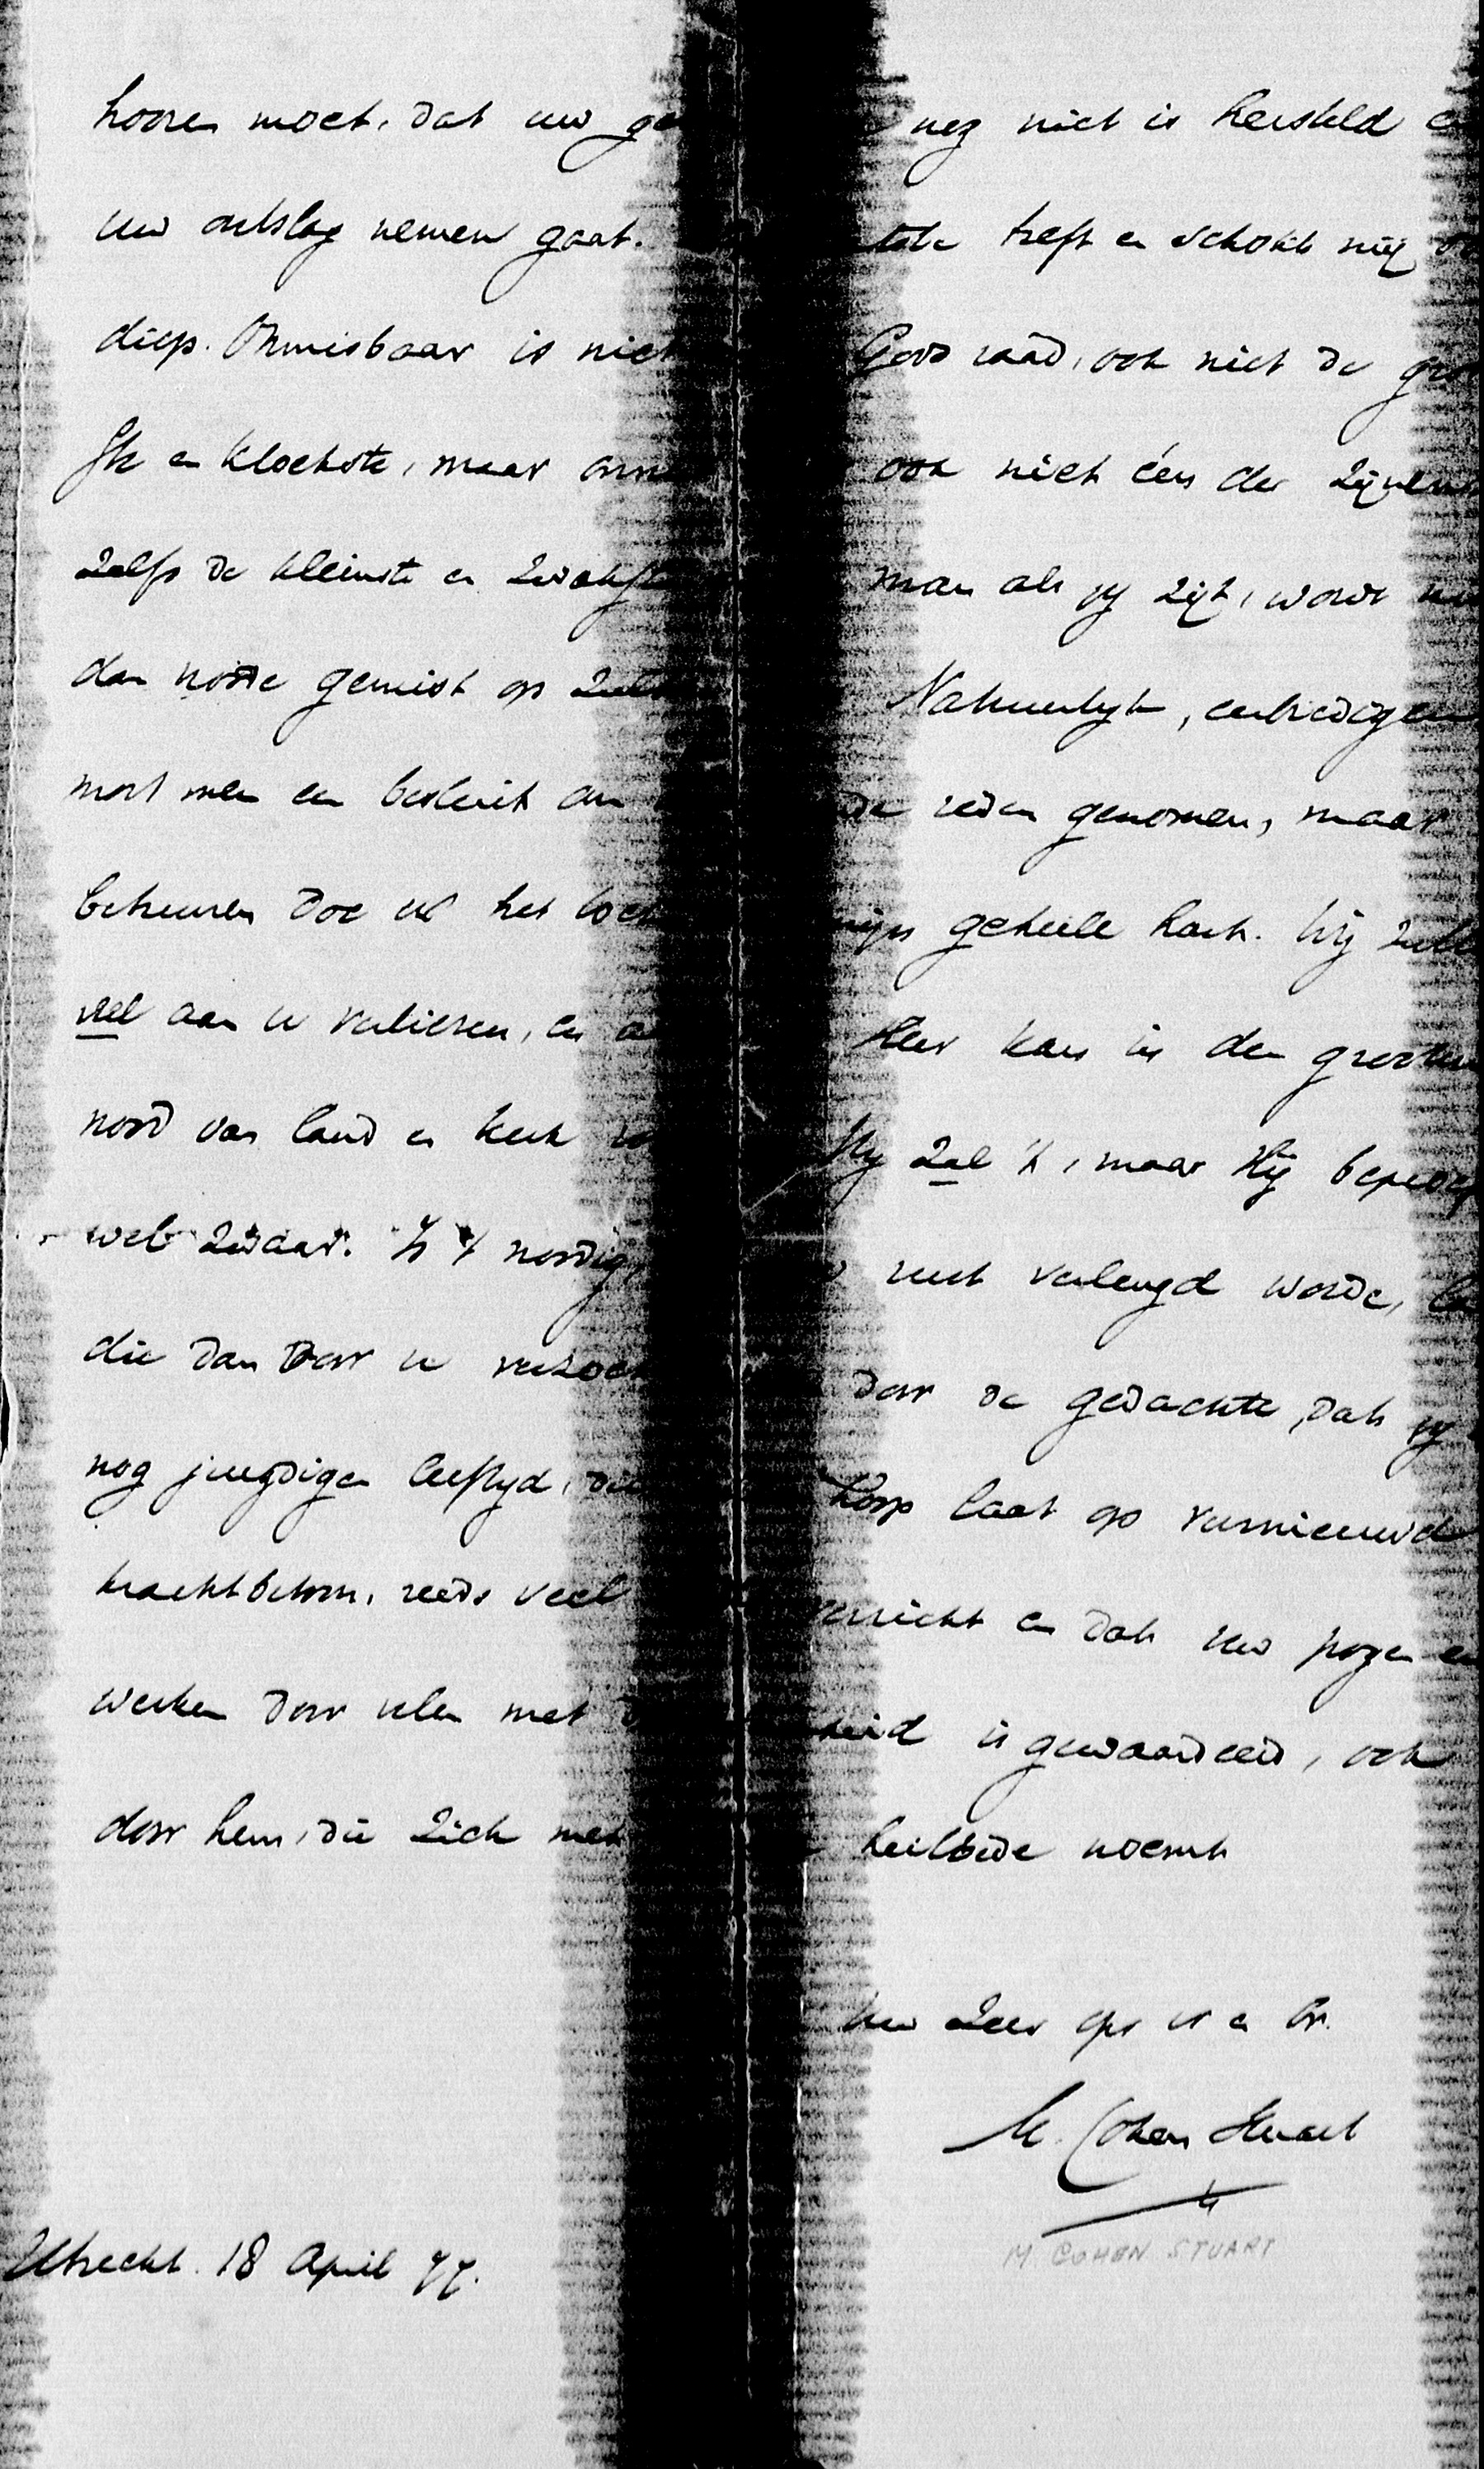 hooren moet, dat uw ge
nog niet is hersteld e
uw ontslag nemen gaat.
treft en schokt mij
diep. Onmisbaar is niet
Gods raad, ook niet de gr
ste en kloekste, maar onm
ook niet één der zijnen
zelfs de kleinste en zwakste
man als gij zijt, wordt
dan noode gemist op
Natuurlijk, eerbiedigen
moet men een besluit om
de reden genomen, maar
betreuren doe ik het toch
mijn geheele hart. Wij zulle
veel aan u verliezen, en
Heer kan in den grooten
nood van land en kerk
Hij zal 't, maar Hij beproe
wel zwaar. Is 't noodig,
rust verlengd worde,
die dan door u verzoet
door de gedachte, dat gij
nog jeugdigen leeftijd, die
hoop laat op vernieuwd
krachtbetoon, reeds veel
verricht en dat uw pogen en
werken door velen met d
heid is gewaardeerd, ook
door hem, die zich met
heilbede noemt
Uw zeer
M. Cohen Stuart
M. COHEN STUART
Utrecht. 18 April 77.